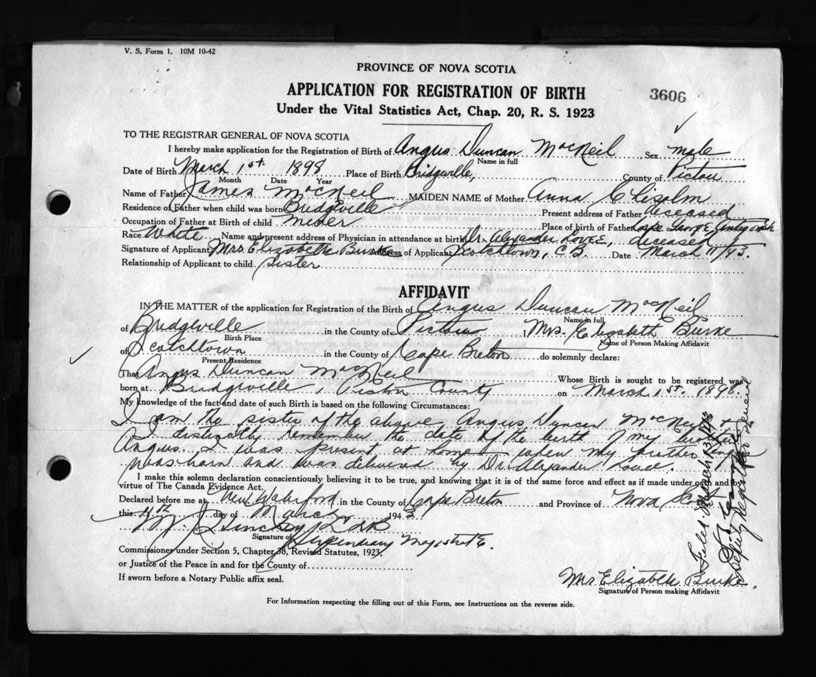 V. S. Form 1. 10M 10-42
PROVINCE OF NOVA SCOTIA
APPLICATION FOR REGISTRATION OF BIRTH
3606
Under the Vital Statistics Act, Chap. 20, R. S. 1923
TO THE REGISTRAR GENERAL OF NOVA SCOTIA
I hereby make application for the Registration of Birth of Angus Duncan MacNeil Sex male
Name in full
Date of Birth March 1st. 1898 Place of Birth Bridgeville, County of Pictou
Month Date Year
Name of Father James MacNeil MAIDEN NAME of Mother Anna Chisolm
Residence of Father when child was born Bridgeville Present address of Father deceased
Occupation of Father at Birth of child miner Place of birth of Father Cape George
Race White Name and present address of Physician in attendance at birth Dr. Alexander deceased
Signature of Applicant Mrs Elizabeth Burke of Applicant Scotchtown, C B. Date March 11/43.
Relationship of Applicant to child Sister
AFFIDAVIT
IN THE MATTER of the application for Registration of the Birth of Angus Duncan MacNeil
Name in full
of Bridgeville in the County of Pictou, Mrs. Elizabeth Burke
Birth Place Name of Person making Affidavit
of Scotchtown in the County of Cape Breton do solemnly declare:
Present Residence
That Angus Duncan MacNeil Whose Birth is sought to be registered was
born at Bridgeville, Pictou County on March 1st. 1898.
My knowledge of the fact and date of such Birth is based on the following Circumstances:
I am the sister of the above, Angus Duncan MacNeil
I distinctly remember the date of the birth of my brother
Angus. I was present at home when my brother
was born and was delivered by Dr. Alexander
I make this solemn declaration conscientiously believing it to be true, and knowing that it is of the same force and effect as if made under oath and by
virtue of The Canada Evidence Act.
Declared before me at New Waterford in the County of Cape Breton and Province of Nova Scotia
this 11th day of March 1943
Signature of Stipendiary Magistrate
Commissioner under Section 5, Chapter 38, Revised Statutes, 1923.
or Justice of the Peace in and for the County of
If sworn before a Notary Public affix seal.
Mrs Elizabeth Burke.
Signature of Person making Affidavit
For Information respecting the filling out of this Form, see Instructions on the reverse side.
Filed March 13, 1943
Deputy Registrar General